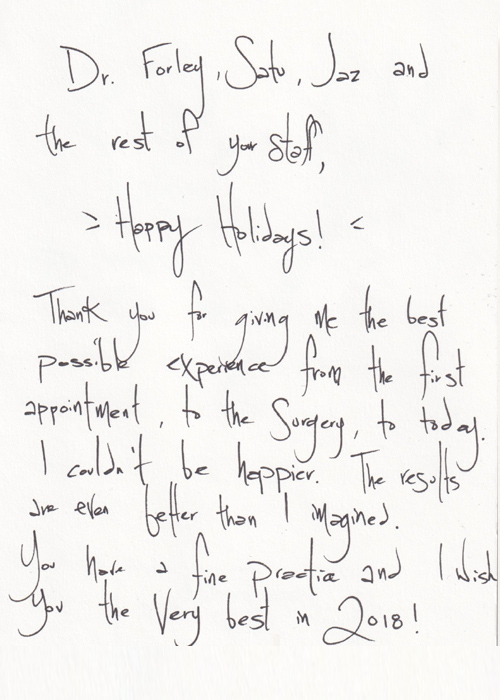 Dr. Forley, Satu, Jaz and
the rest of your staff,
> Happy Holidays! <
Thank you for giving me the best
possible experience from the first
appointment, to the surgery, to today.
I couldn't be happier. The results
are even better than I imagined.
You have a fine practice and I wish
you the very best in 2018!